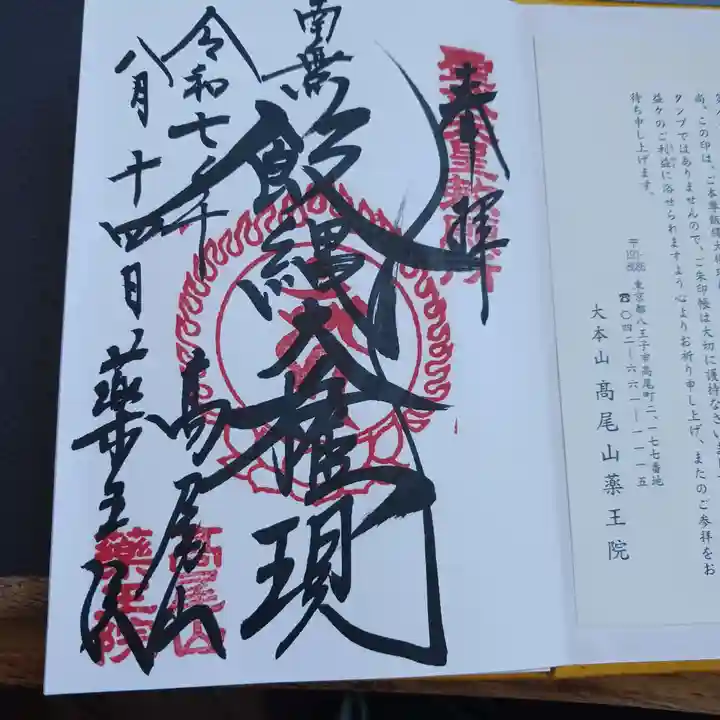 奉拝
南無飯縄大権現
高尾山
令和七年
八月十四日 薬王院
高尾山
薬王院
尚、この印は、ご本尊飯縄大権現
タンプではありませんので、ご朱印帳は大切に護持なさい
益々のご利益に浴せられますよう心よりお祈り申し上げ、またのご参拝をお
待ち申し上げます。
東京都八王子市高尾町二、一七七番地
☎〇四二―六六一―一一一五
大本山髙尾山薬王院